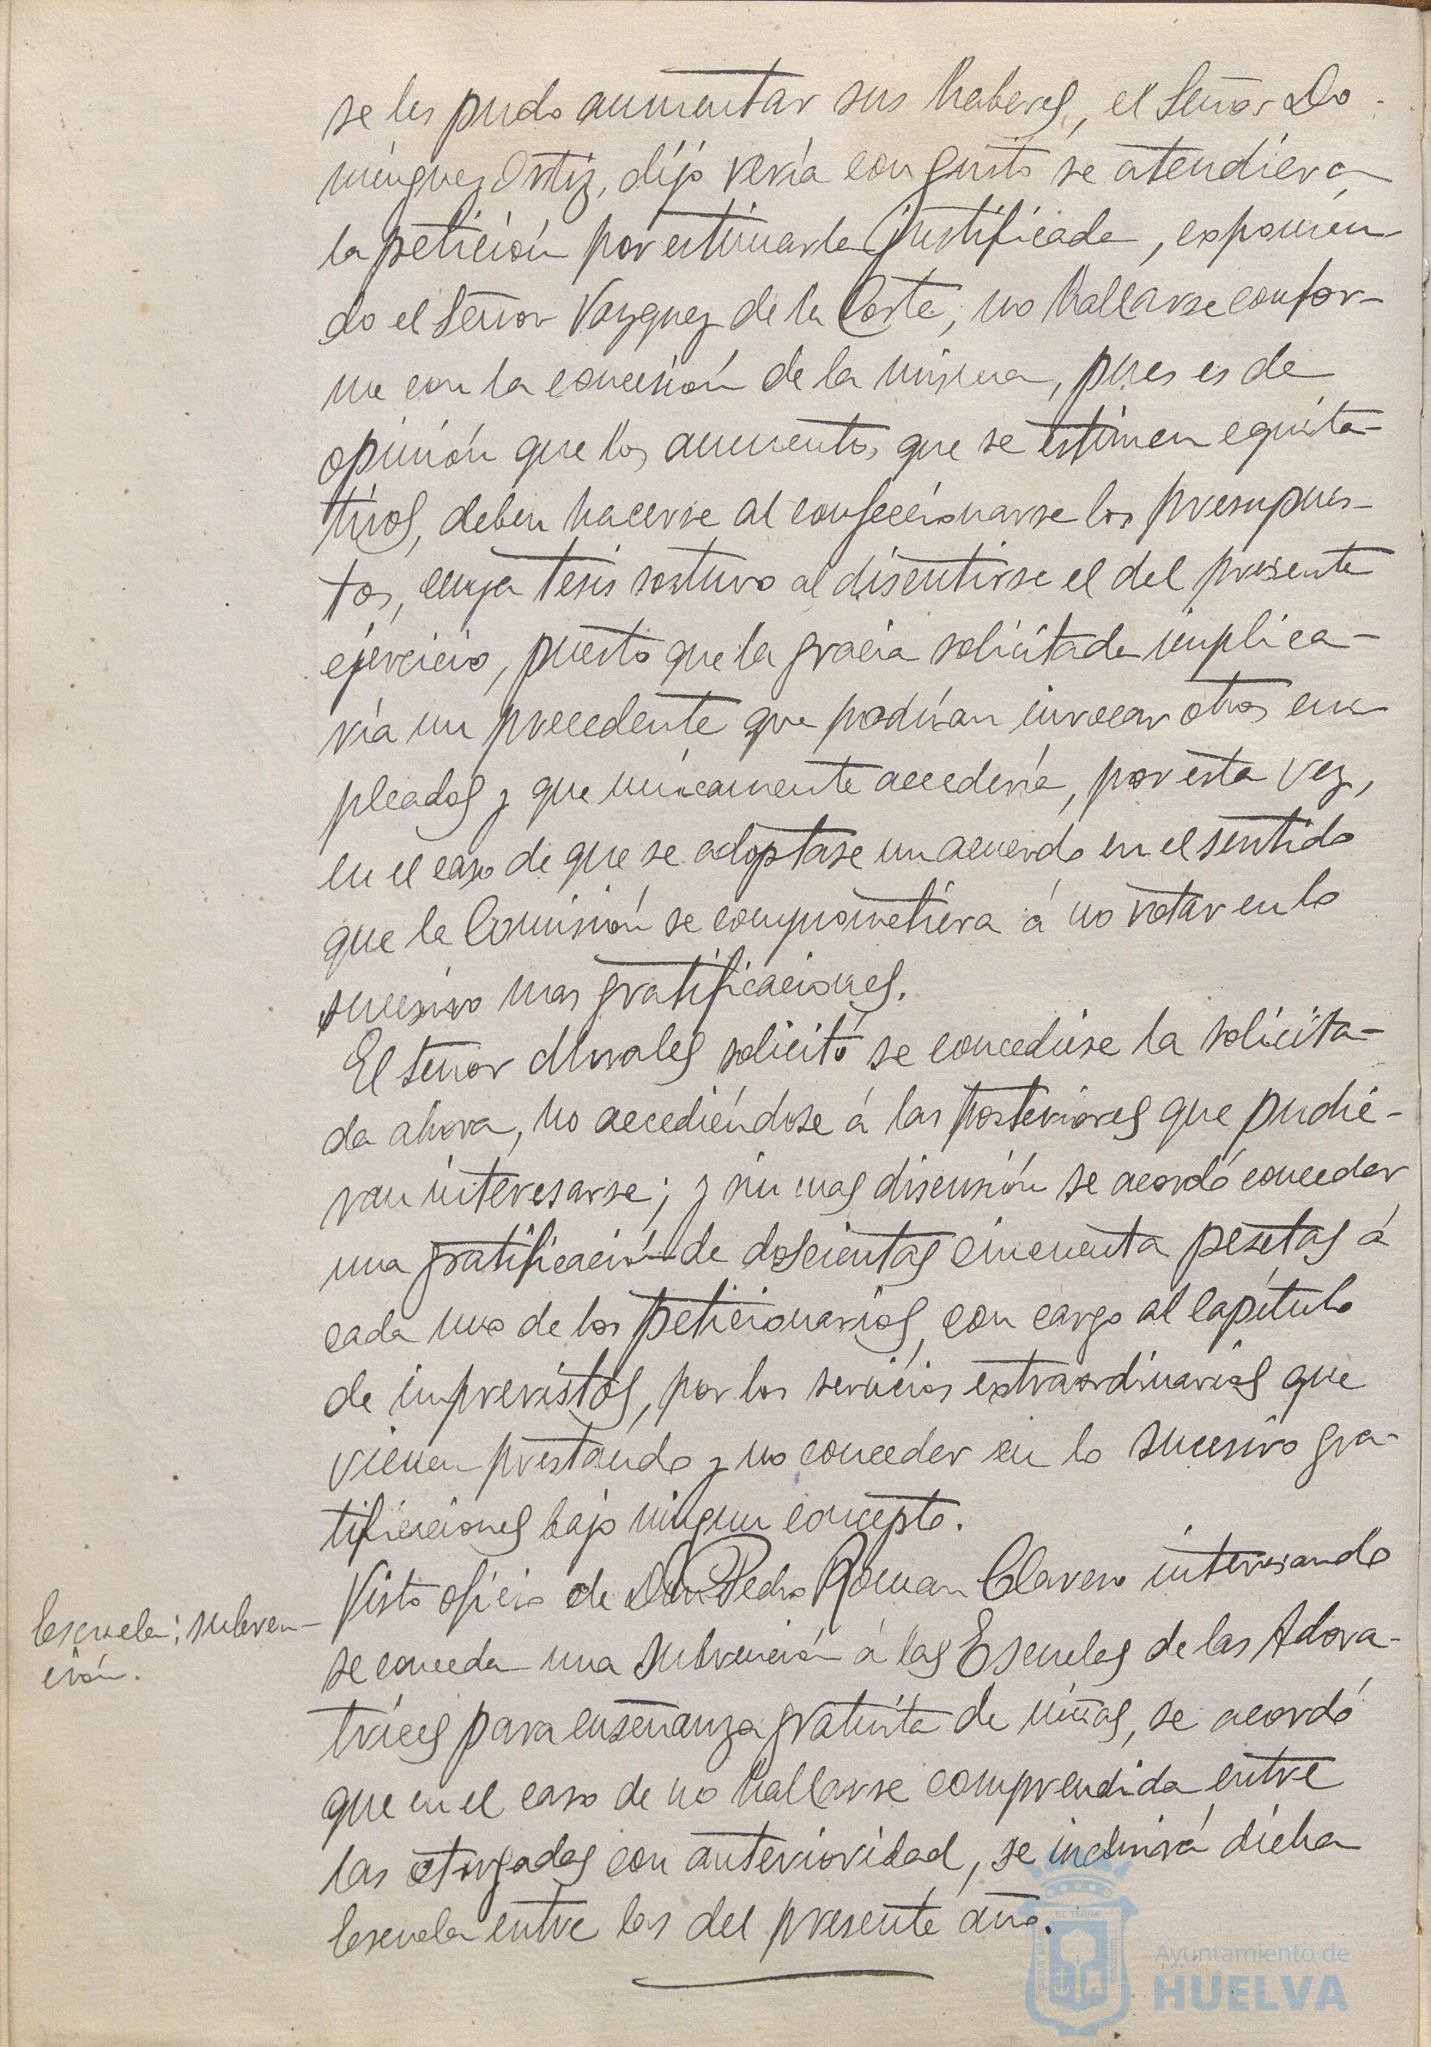 se les pudo aumentar sus haberes, el Señor Do-
minguez Ortiz, dijo vería con gusto se atendiera
la petición por estimarla justificada, exponien-
do el Señor Vazquez de la Corte, no hallarse confor-
me con la concesión de la misma, pues es de
opinión que los aumentos que se estimen equita-
tivos, deben hacerse al confeccionarse los presupues-
tos, cuya tesis sostuvo al discutirse el del presente
ejercicio, puesto que la gracia solicitada implica-
ría un precedente que podrían invocar otros em-
pleados y que unicamente accedería, por esta vez,
en el caso de que se adoptase un acuerdo en el sentido
que la Comisión se comprometiera á no votar en lo
sucesivo mas gratificaciones.
El señor Morales solicitó se concediese la solicita-
da ahora, no accediéndose á las posteriores que pudie-
ran interesarse; y sin mas discusión se acordó conceder
una gratificación de doscientas cincuenta pesetas á
cada uno de los peticionarios, con cargo al capítulo
de imprevistos, por los servicios extraordinarios que
vienen prestando y no conceder en lo sucesivo gra-
tificaciones bajo ningun concepto.
Escuela; subven-
ción.
Visto oficio de Don Pedro Roman Clavero interesando
se conceda una subvención á las Escuelas de las Adora-
trices para enseñanza gratuita de niñas, se acordó
que en el caso de no hallarse comprendida entre
las otorgadas con anterioridad, se incluirá dicha
Escuela entre las del presente año.
Ayuntamiento de
HUELVA